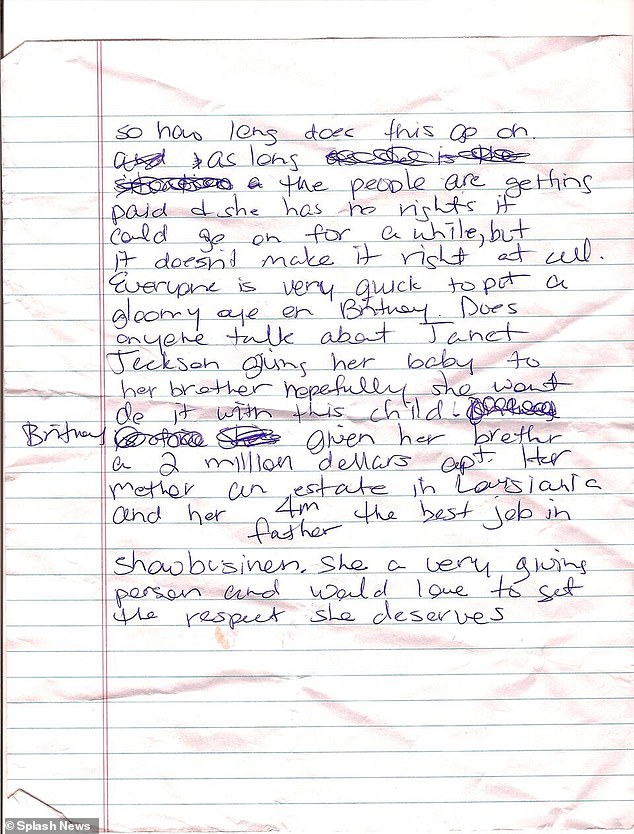 so how long does this go on.
as long
the people are getting
paid & she has no rights it
could go on for a while, but
it doesn't make it right at all.
Everyone is very quick to put a
gloomy eye on Britney. Does
anyone talk about Janet
Jeckson giving her baby to
her brother hopefully she wont
do it with this child.
Britney given her brother
a 2 million dollars apt. Her
mother an estate in Louisiania
and her 4m the best job in
father
showbusiness. She a very giving
person and would love to get
the respect she deserves
© Splash News